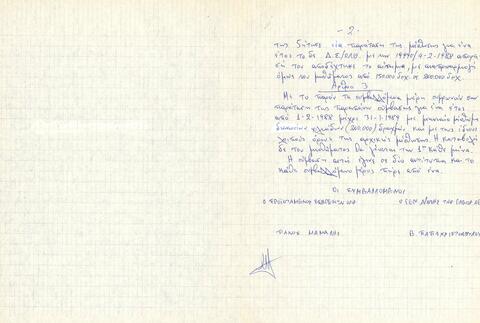 - 2 -
της ζήτησε νέα παράταση της μίσθωσης για ένα
έτος το δε Δ.Σ/ΟΛΘ με την 19990/4-2-1988 απόφα
σή του αποδέχτηκε το αίτημα, με αναπροσαρμογή
όμως του μισθώματος από 150.000 δρχ. σε 200.000 δρχ.
Άρθρο 3
Με το παρόν τα συμβαλλόμενα μέρη συμφωνούν την
παράταση της παραπάνω σύμβασης για ένα έτος
από 1-2-1988 μέχρι 31-1-1989 με μηνιαίο μίσθωμα
διακοσίων χιλιάδων (200.000) δραχμών, και με τους ίδιους
λοιπούς όρους της αρχικής μίσθωσης. Η καταβολή
δε του μισθώματος θα γίνεται την 1η κάθε μήνα.
Η σύμβαση αυτή έγινε σε δύο αντίτυπα και το
κάθε συμβαλλόμενο μέρος πήρε από ένα.
ΟΙ ΣΥΜΒΑΛΛΟΜΕΝΟΙ
Ο ΠΡΟΪΣΤΑΜΕΝΟΣ
Ο ΓΕΝ. Δ/ΝΤΗΣ ΤΗΣ
ΠΑΝΟΣ ΜΑΜΑΛΗΣ
Β. ΠΑΠΑΧΡΙΣΤΟΠΟΥΛΟΣ